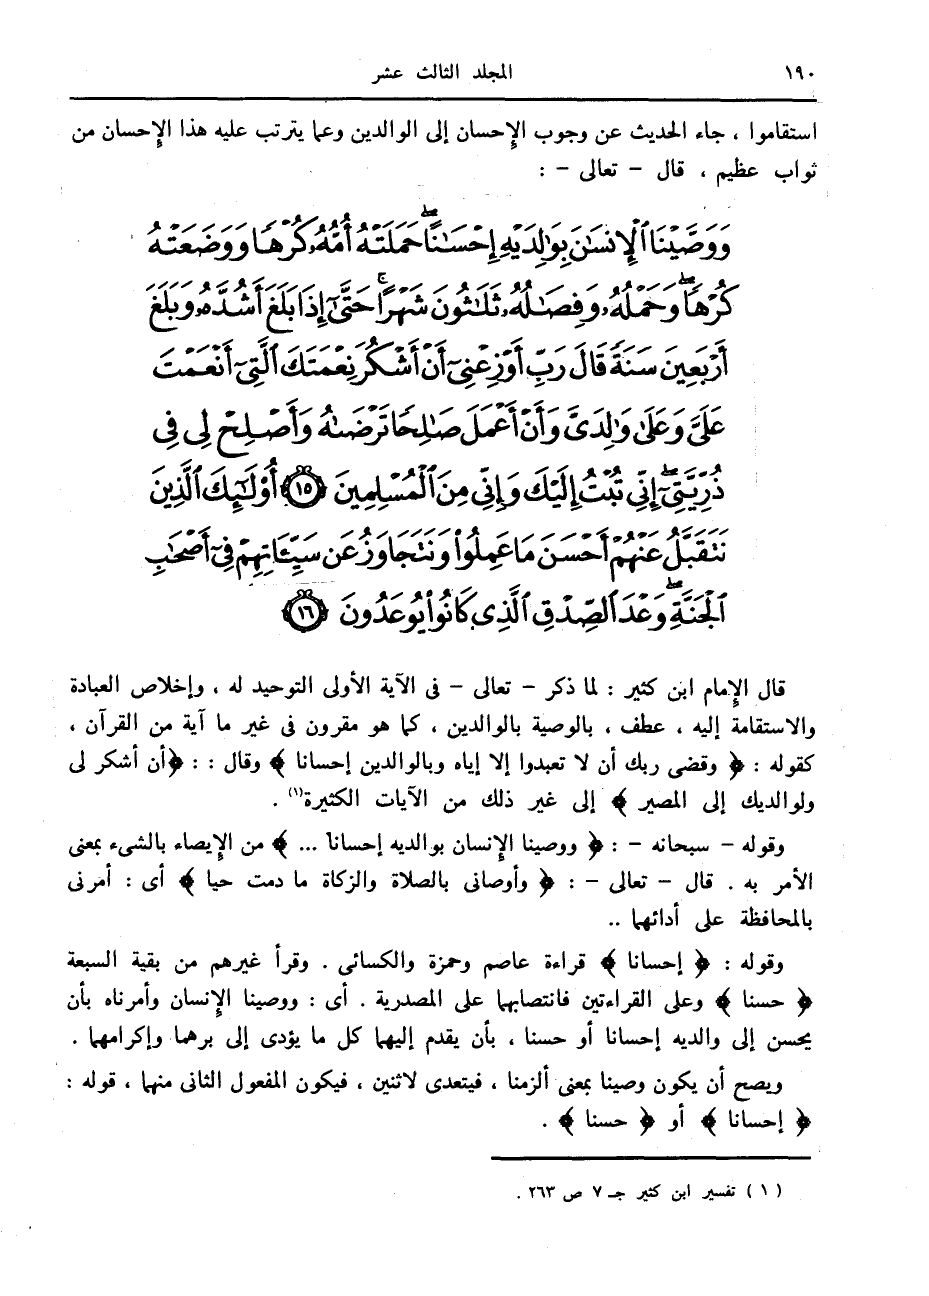 ١٩٠ المجلد الثالث عشر
استقاموا ، جاء الحديث عن وجوب الإحسان إلى الوالدين وعما يترتب عليه هذا الإحسان من
ثواب عظيم ، قال – تعالى – :
وَوَصَّيْنَا ٱلْإِنسَٰنَ بِوَٰلِدَيْهِ إِحْسَٰنًا ۖ حَمَلَتْهُ أُمُّهُۥ كُرْهًا وَوَضَعَتْهُ
كُرْهًا ۖ وَحَمْلُهُۥ وَفِصَٰلُهُۥ ثَلَٰثُونَ شَهْرًا ۚ حَتَّىٰٓ إِذَا بَلَغَ أَشُدَّهُۥ وَبَلَغَ
أَرْبَعِينَ سَنَةً قَالَ رَبِّ أَوْزِعْنِىٓ أَنْ أَشْكُرَ نِعْمَتَكَ ٱلَّتِىٓ أَنْعَمْتَ
عَلَىَّ وَعَلَىٰ وَٰلِدَىَّ وَأَنْ أَعْمَلَ صَٰلِحًا تَرْضَىٰهُ وَأَصْلِحْ لِى فِى
ذُرِّيَّتِىٓ ۖ إِنِّى تُبْتُ إِلَيْكَ وَإِنِّى مِنَ ٱلْمُسْلِمِينَ ١٥ أُو۟لَٰٓئِكَ ٱلَّذِينَ
نَتَقَبَّلُ عَنْهُمْ أَحْسَنَ مَا عَمِلُوا۟ وَنَتَجَاوَزُ عَن سَيِّـَٔاتِهِمْ فِىٓ أَصْحَٰبِ
ٱلْجَنَّةِ ۖ وَعْدَ ٱلصِّدْقِ ٱلَّذِى كَانُوا۟ يُوعَدُونَ ١٦
قال الإمام ابن كثير : لما ذكر – تعالى – فى الآية الأولى التوحيد له ، وإخلاص العبادة
والاستقامة إليه ، عطف ، بالوصية بالوالدين ، كما هو مقرون فى غير ما آية من القرآن ،
كقوله : ﴿ وقضى ربك أن لا تعبدوا إلا إياه وبالوالدين إحسانا ﴾ وقال : : ﴿أن أشكر لى
ولوالديك إلى المصير ﴾ إلى غير ذلك من الآيات الكثيرة(١) .
وقوله – سبحانه – : ﴿ ووصينا الإنسان بوالديه إحسانا ... ﴾ من الإيصاء بالشىء بمعنى
الأمر به . قال – تعالى – : ﴿ وأوصانى بالصلاة والزكاة ما دمت حيا ﴾ أى : أمرنى
بالمحافظة على أدائهما ..
وقوله : ﴿ إحسانا ﴾ قراءة عاصم وحمزة والكسائى . وقرأ غيرهم من بقية السبعة
﴿ حسنا ﴾ وعلى القراءتين فانتصابهما على المصدرية . أى : ووصينا الإنسان وأمرناه بأن
يحسن إلى والديه إحسانا أو حسنا ، بأن يقدم إليهما كل ما يؤدى إلى برهما وإكرامهما .
ويصح أن يكون وصينا بمعنى ألزمنا ، فيتعدى لاثنين ، فيكون المفعول الثانى منهما ، قوله :
﴿ إحسانا ﴾ أو ﴿ حسنا ﴾ .
( ١ ) تفسير ابن كثير جـ ٧ ص ٢٦٣ .